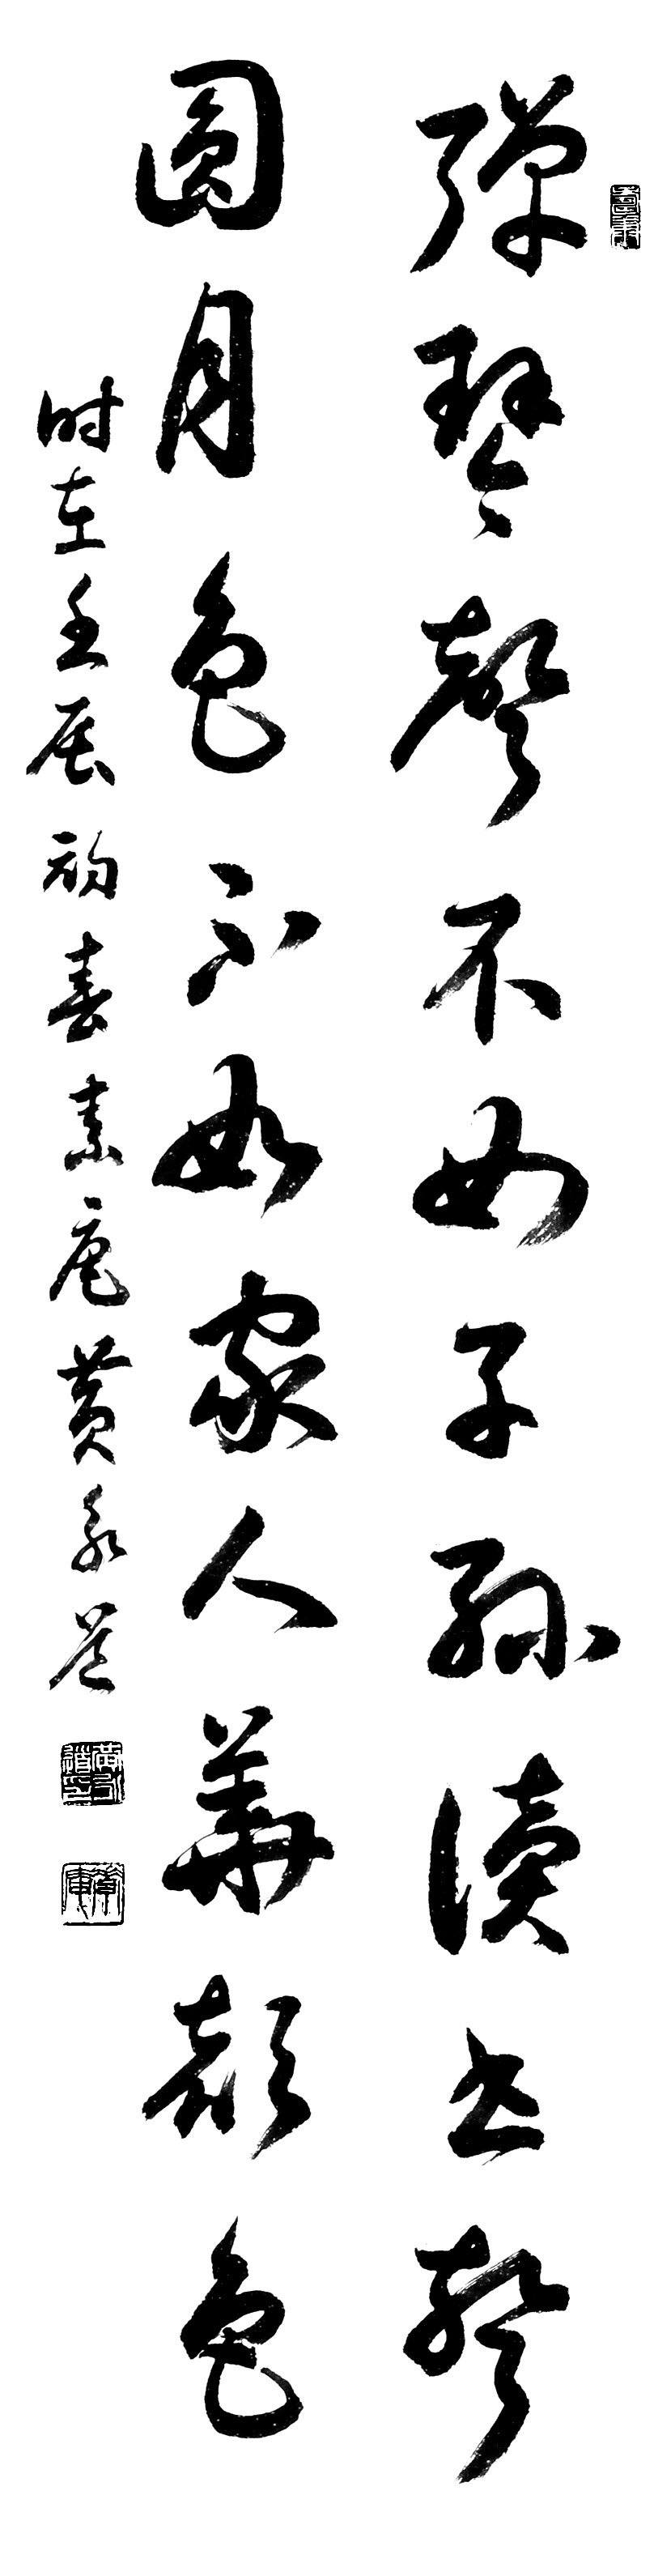 弹琴声不如子孙读书声
圆月色不如家人美颜色
时在壬辰初春素庵黄永道